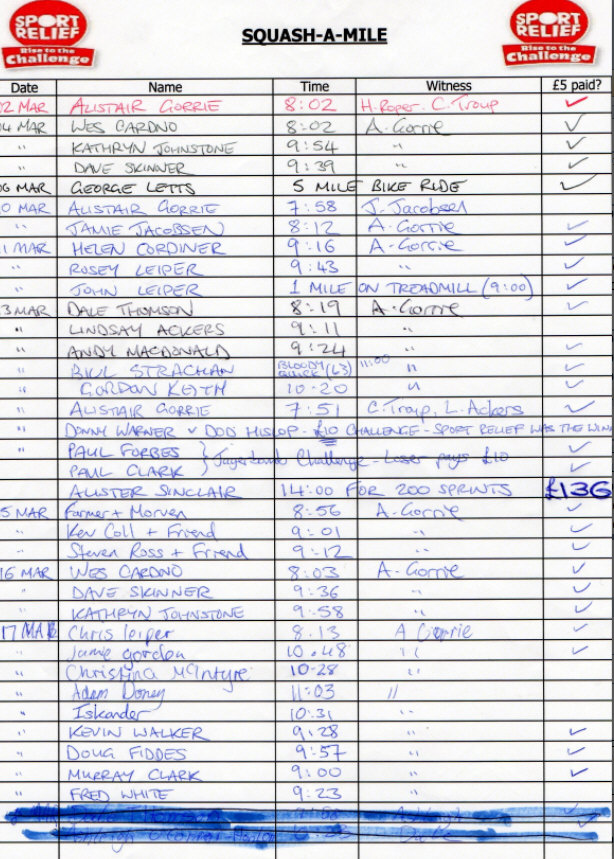 SPORT RELIEF
Rise to the
Challenge
SQUASH-A-MILE
SPORT RELIEF
Rise to the
Challenge
Date Name Time Witness £5 paid?
02 MAR ALISTAIR GORRIE 8:02 H. Roper. C. Troup ✓
04 MAR WES CARDNO 8:02 A. Gorrie ✓
" KATHRYN JOHNSTONE 9:54 " ✓
" DAVE SKINNER 9:39 " ✓
06 MAR GEORGE LETTS 5 MILE BIKE RIDE ✓
0 MAR ALISTAIR GORRIE 7:58 J. Jacobsen
" JAMIE JACOBSEN 8:12 A. Gorrie ✓
1 MAR HELEN CORDINER 9:16 A. Gorrie ✓
" ROSEY LEIPER 9:43 " ✓
" JOHN LEIPER 1 MILE ON TREADMILL (9:00) ✓
3 MAR DALE THOMSON 8:19 A. Gorrie ✓
" LINDSAY ACKERS 9:11 "
" ANDY MACDONALD 9:24 " ✓
" BILL STRACHAN BLOODY QUICK (63) 11:00 " ✓
" GORDON KEITH 10:20 " ✓
" ALISTAIR GORRIE 7:51 C. Troup, L. Ackers ✓
" DONNY WARNER v DOD HISLOP - £10 CHALLENGE - SPORT RELIEF WAS THE WIN
" PAUL FORBES } Jagerbomb Challenge - Loser pays £10 ✓
PAUL CLARK ✓
ALISTER SINCLAIR 14:00 FOR 200 SPRINTS £136
5 MAR Farmer + Morven 8:56 A. Gorrie ✓
" Kev Coll + Friend 9:01 " ✓
" Steven Ross + Friend 9:12 " ✓
16 MAR WES CARDNO 8:03 A. Gorrie ✓
" DAVE SKINNER 9:36 " ✓
" KATHRYN JOHNSTONE 9:58 " ✓
17 MAR Chris leiper 8.13 A Gorrie ✓
" Jamie gordon 10.48 " ✓
" Christina McIntyre 10-28 "
" Adam Doney 11:03 "
" Iskander 10:31 "
" KEVIN WALKER 9:28 " ✓
" DOUG FIDDES 9:57 " ✓
" MURRAY CLARK 9:00 " ✓
" FRED WHITE 9:23 "